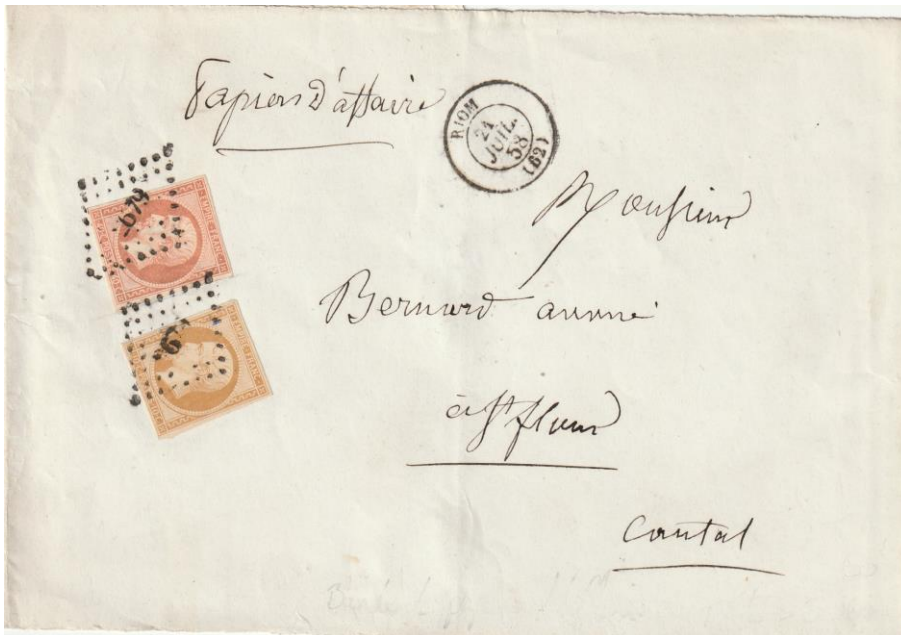 Papiers d'affaire
RIOM
21
JUIL.
58
(62)
Monsieur
2679
Bernard avoué
à St flour
Cantal